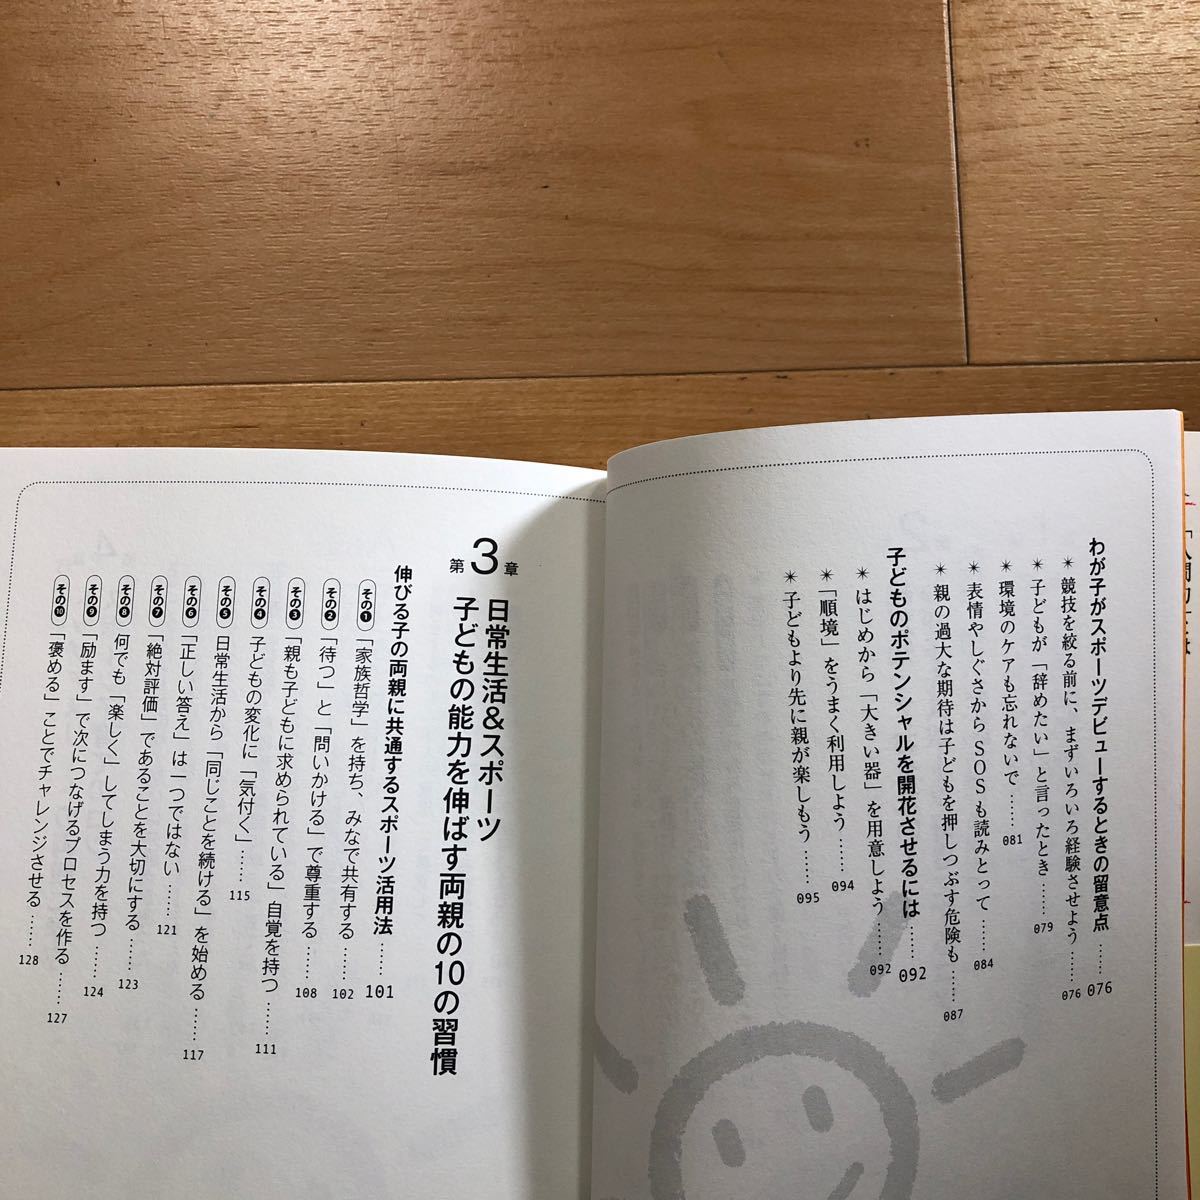 わが子がスポーツデビューするときの留意点 …… 076
＊競技を絞る前に、まずいろいろ経験させよう …… 076
＊子どもが「辞めたい」と言ったとき …… 079
＊環境のケアも忘れないで …… 081
＊表情やしぐさからSOSも読みとって …… 084
＊親の過大な期待は子どもを押しつぶす危険も …… 087
子どものポテンシャルを開花させるには …… 092
＊はじめから「大きい器」を用意しよう …… 092
＊「順境」をうまく利用しよう …… 094
＊子どもより先に親が楽しもう …… 095
第3章 日常生活&スポーツ
子どもの能力を伸ばす両親の10の習慣
伸びる子の両親に共通するスポーツ活用法 …… 101
その❶「家族哲学」を持ち、みんなで共有する …… 102
その❷「待つ」と「問いかける」で尊重する …… 108
その❸「親も子どもに求められている」自覚を持つ …… 111
その❹ 子どもの変化に「気付く」 …… 115
その❺ 日常生活から「同じことを続ける」を始める …… 117
その❻「正しい答え」は一つではない …… 121
その❼「絶対評価」であることを大切にする …… 123
その❽ 何でも「楽しく」してしまう力を持つ …… 124
その❾「励ます」で次につなげるプロセスを作る …… 127
その❿「褒める」ことでチャレンジさせる …… 128